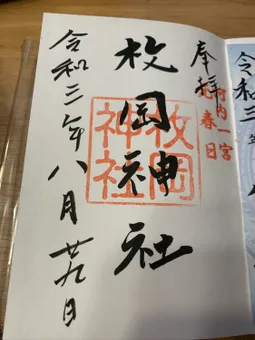 奉拝
河内一宮
元春日
枚岡神社
枚岡
神社
令和三年八月廿九日
令和三年